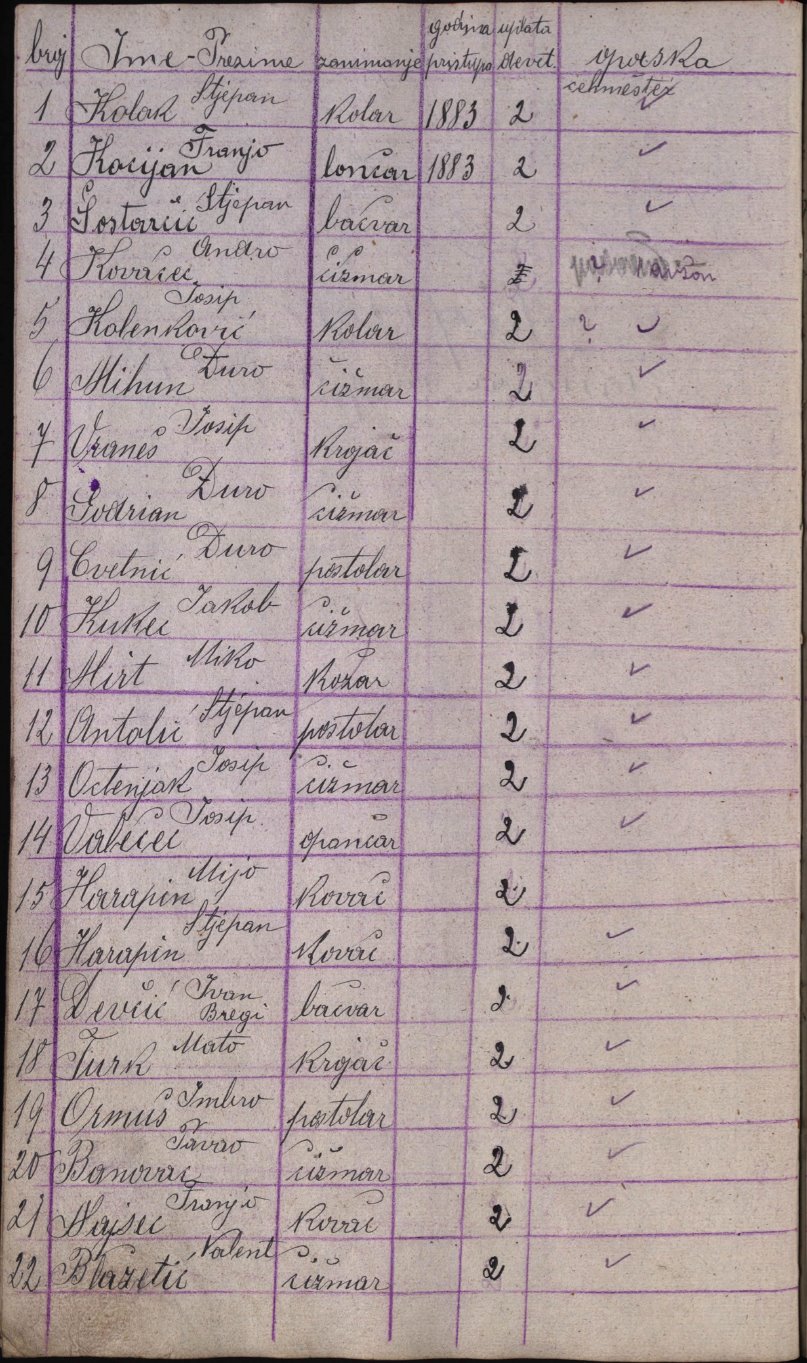 broj Ime - Prezime zanimanje godina pristupa uplata devet. opaska
cehmešter
1 Kolak Stjepan kolar 1883 2 ✓
2 Kocijan Franjo lončar 1883 2 ✓
3 Šostarčić Stjepan bačvar 2 ✓
4 Kovačec Andro čižmar 2 ?
5 Kolenković Josip kolar 2 ? ✓
6 Mihun Đuro čižmar 2 ✓
7 Vraneš Josip krojač 2 ✓
8 Đuro čižmar 2 ✓
9 Cvetnić Đuro postolar 2 ✓
10 Kukec Jakob čižmar 2 ✓
11 Hirt Miko kožar 2 ✓
12 Antolić Stjepan postolar 2 ✓
13 Octenjak Josip čižmar 2 ✓
14 Valečec Josip opančar 2 ✓
15 Harapin Mijo kovač 2
16 Harapin Stjepan kovač 2 ✓
17 Devčić Ivan Bregi bačvar 2 ✓
18 Turk Mato krojač 2 ✓
19 Ormuš Imbro postolar 2 ✓
20 Banovac Pavao čižmar 2 ✓
21 Hajsec Franjo kovač 2 ✓
22 Blažetić Valent čižmar 2 ✓